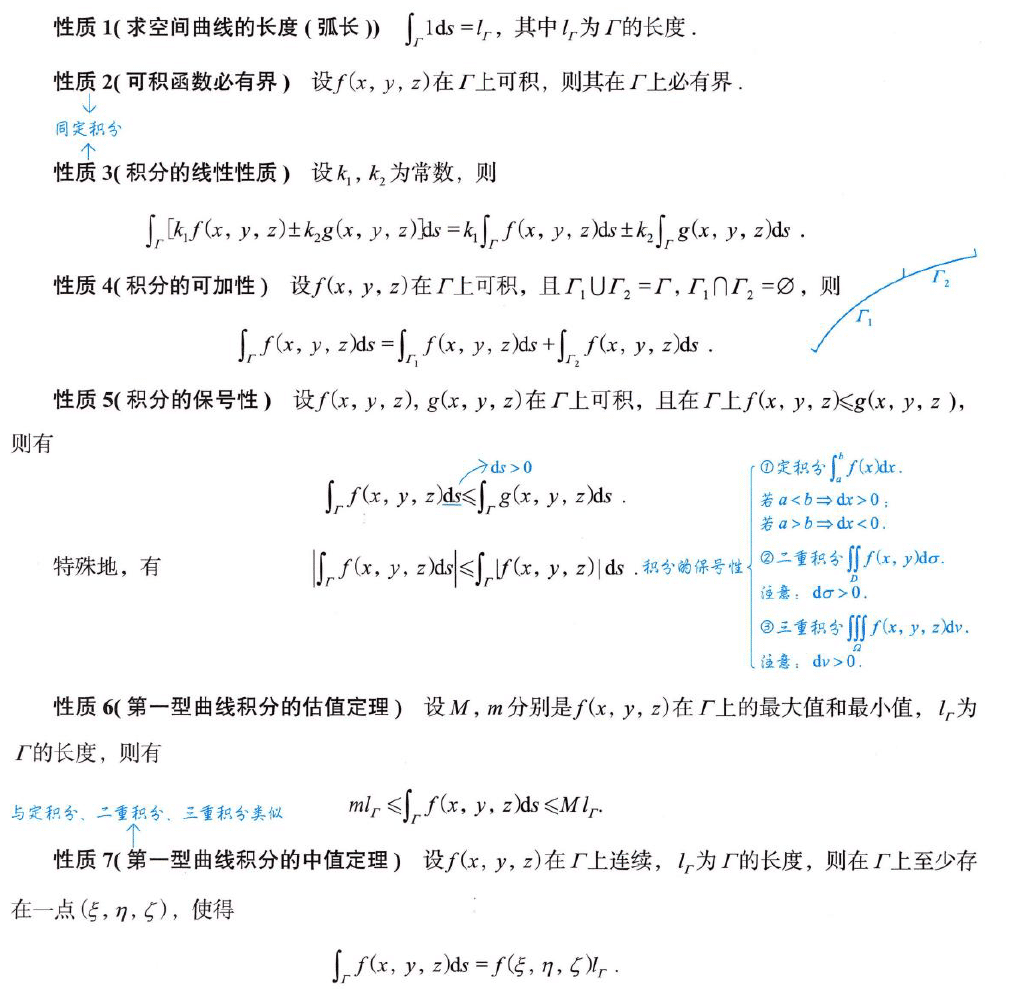 性质 1( 求空间曲线的长度 ( 弧长 )) ∫_Γ 1ds = l_Γ，其中 l_Γ 为 Γ 的长度 .
性质 2( 可积函数必有界 ) 设 f(x, y, z) 在 Γ 上可积，则其在 Γ 上必有界 .
同定积分
性质 3( 积分的线性性质 ) 设 k₁, k₂ 为常数，则
∫_Γ [k₁f(x, y, z)±k₂g(x, y, z)]ds = k₁∫_Γ f(x, y, z)ds±k₂∫_Γ g(x, y, z)ds .
性质 4( 积分的可加性 ) 设 f(x, y, z) 在 Γ 上可积，且 Γ₁∪Γ₂ = Γ, Γ₁∩Γ₂ = ∅，则
Γ₂
Γ₁
∫_Γ f(x, y, z)ds = ∫_Γ₁ f(x, y, z)ds + ∫_Γ₂ f(x, y, z)ds .
性质 5( 积分的保号性 ) 设 f(x, y, z), g(x, y, z) 在 Γ 上可积，且在 Γ 上 f(x, y, z)≤g(x, y, z ),
则有
ds > 0
∫_Γ f(x, y, z)ds≤∫_Γ g(x, y, z)ds .
特殊地，有 |∫_Γ f(x, y, z)ds|≤∫_Γ |f(x, y, z)| ds .
积分的保号性
①定积分∫_a^b f(x)dx.
若 a < b ⇒ dx > 0；
若 a > b ⇒ dx < 0.
②二重积分∬_D f(x, y)dσ.
注意：dσ > 0.
③三重积分∭_Ω f(x, y, z)dv.
注意：dv > 0.
性质 6( 第一型曲线积分的估值定理 ) 设 M, m 分别是 f(x, y, z) 在 Γ 上的最大值和最小值，l_Γ 为
Γ 的长度，则有
ml_Γ ≤∫_Γ f(x, y, z)ds≤Ml_Γ.
与定积分、二重积分、三重积分类似
性质 7( 第一型曲线积分的中值定理 ) 设 f(x, y, z) 在 Γ 上连续，l_Γ 为 Γ 的长度，则在 Γ 上至少存
在一点 (ξ, η, ζ)，使得
∫_Γ f(x, y, z)ds = f(ξ, η, ζ)l_Γ .